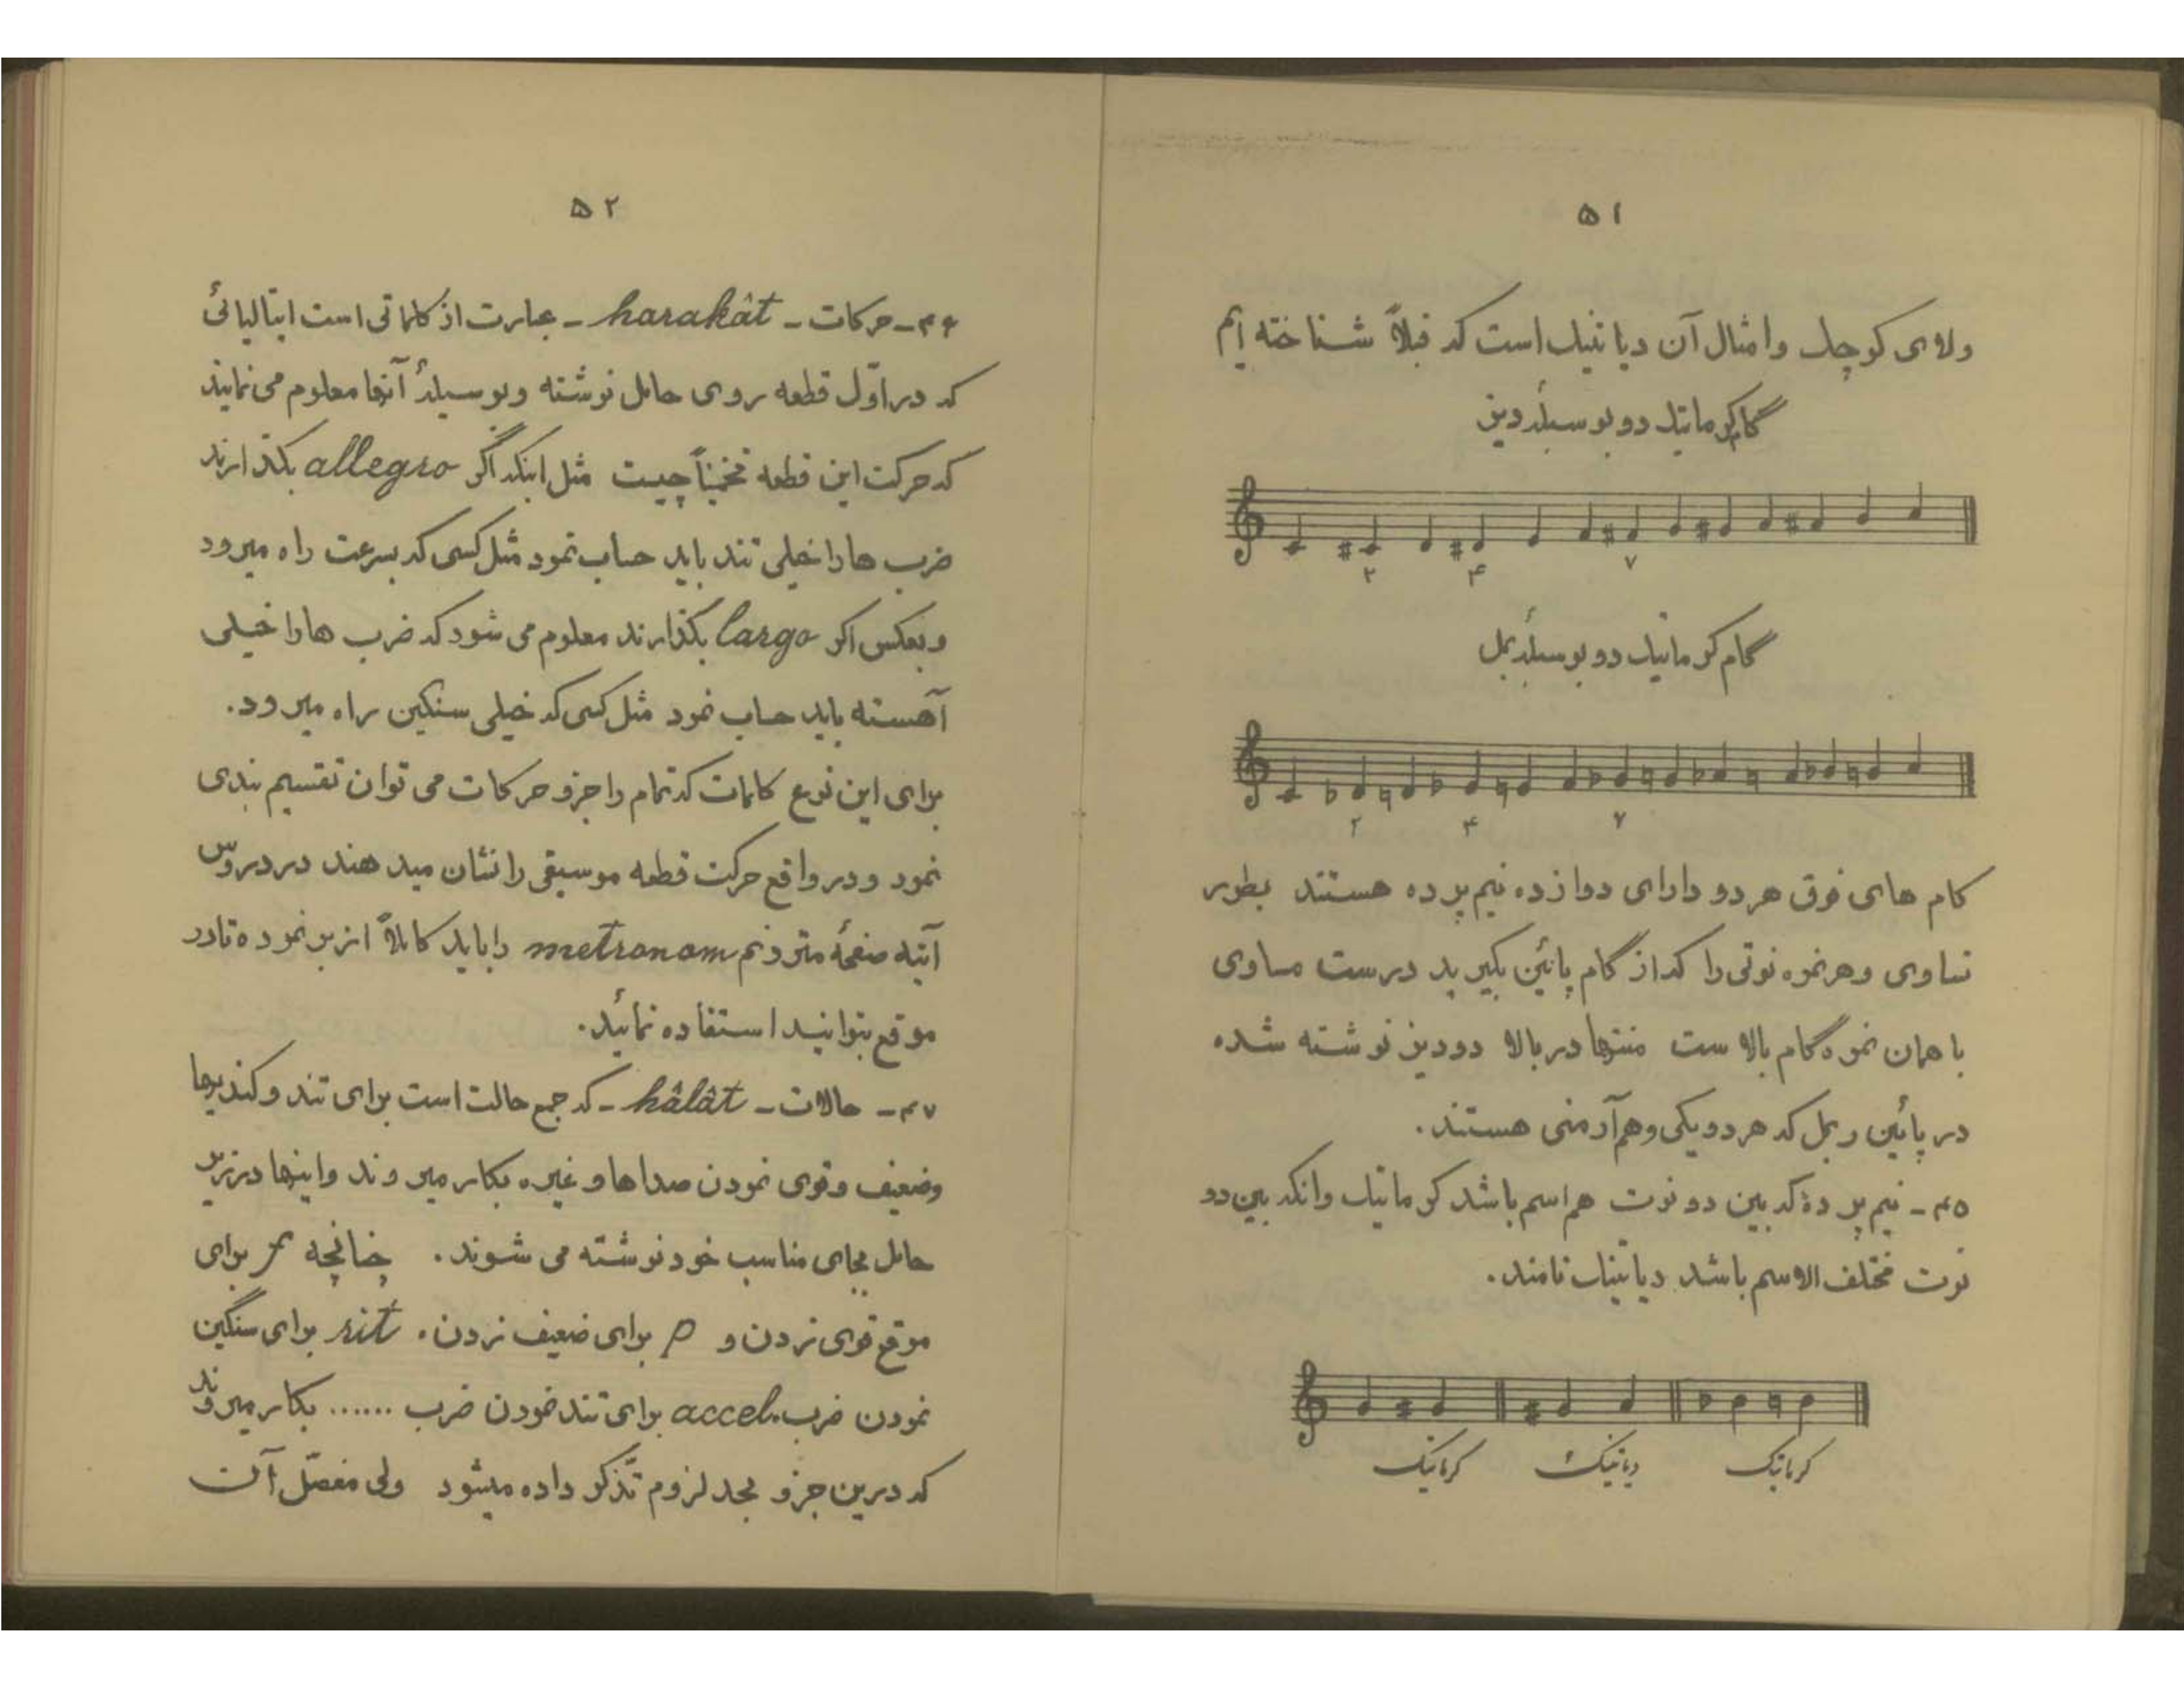 ۵۱
ولای کوچک وامثال آن دیاتنیک است که قبلاً شناخته ایم
گام کرماتیک دو بوسیلهٔ دیز
۲ ۴ ۷
گام کرماتیک دو بوسیلهٔ بمل
۲ ۴ ۷
گام های فوق هر دو دارای دوازده نیم پرده هستند بطور
تساوی وهر نمره نوتی را که از گام پائین بگیرید درست مساوی
با همان نمره گام بالا ست منتها در بالا دو دیز نوشته شده
در پائین ر بمل که هر دو یکی وهم آرمنی هستند.
۴۵ - نیم پردهٔ که بین دو نوت هم اسم باشد کرماتیک وآنکه بین دو
نوت مختلف الاسم باشد دیاتنیک نامند.
کرماتیک دیاتنیک کرماتیک
۵۲
۴۶ - حرکات - harakât - عبارت از کلماتی است ایتالیائی
که در اوّل قطعه روی حامل نوشته وبوسیلهٔ آنها معلوم می نمایند
که حرکت این قطعه تخمیناً چیست مثل اینکه اگر allegro بگذارند
ضرب ها را خیلی تند باید حساب نمود مثل کسی که بسرعت راه میرود
و بعکس اگر largo بگذارند معلوم می شود که ضرب ها را خیلی
آهسته باید حساب نمود مثل کسی که خیلی سنگین راه میرود.
برای این نوع کلمات که تمام را جزو حرکات می توان تقسیم بندی
نمود و در واقع حرکت قطعه موسیقی را نشان میدهند در دروس
آتیه صفحهٔ مترونم metronom را باید کاملاً از بر نموده تا در
موقع بتوانید استفاده نمائید.
۴۷ - حالات - hâlât - که جمع حالت است برای تند و کندیها
وضعیف وقوی نمودن صداها و غیره بکار میروند واینها در زیر
حامل بجای مناسب خود نوشته می شوند. چنانچه f برای
موقع قوی زدن و p برای ضعیف زدن. rit برای سنگین
نمودن ضرب. accel برای تند نمودن ضرب ...... بکار میروند
که درین جزو بحد لزوم تذکّر داده میشود ولی مفصّل آن